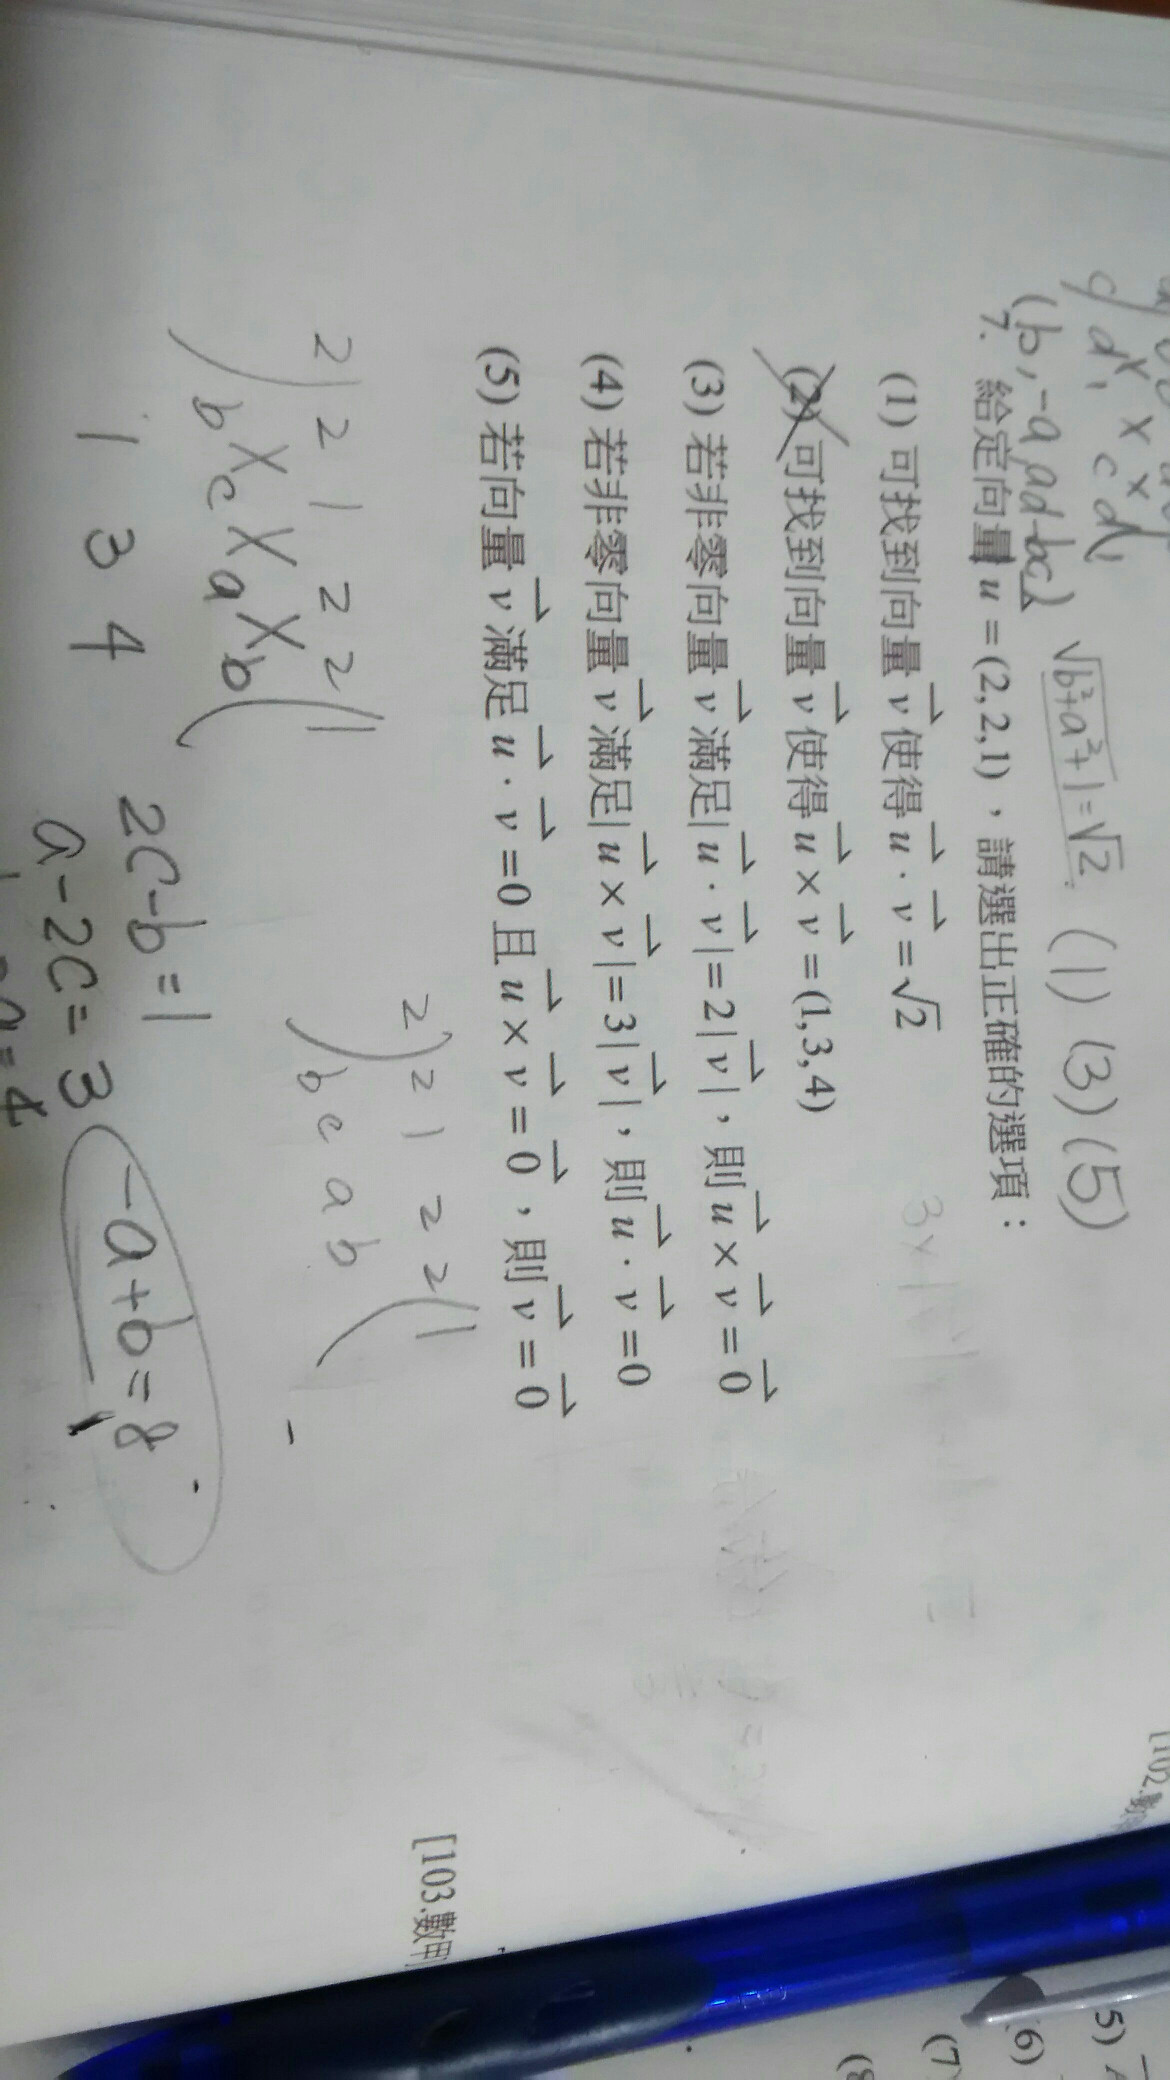 (b,-a,ad-bc)
√b²+a²+1=√2 (1)(3)(5)
7. 給定向量 u=(2,2,1),請選出正確的選項:
(1) 可找到向量 v 使得 u · v =√2
(2) 可找到向量 v 使得 u × v =(1,3,4)
(3) 若非零向量 v 滿足| u · v |=2| v |,則 u × v = 0
(4) 若非零向量 v 滿足| u × v |=3| v |,則 u · v =0
(5) 若向量 v 滿足 u · v =0 且 u × v = 0,則 v = 0
[103.數甲]
2) 2 1 2 2 (1
b c a b
2) 2 1 2 2 (1
b c a b
1 3 4
2c-b=1
a-2c=3
-a+b=8
[102.數
5)
(6)
(7)
(8